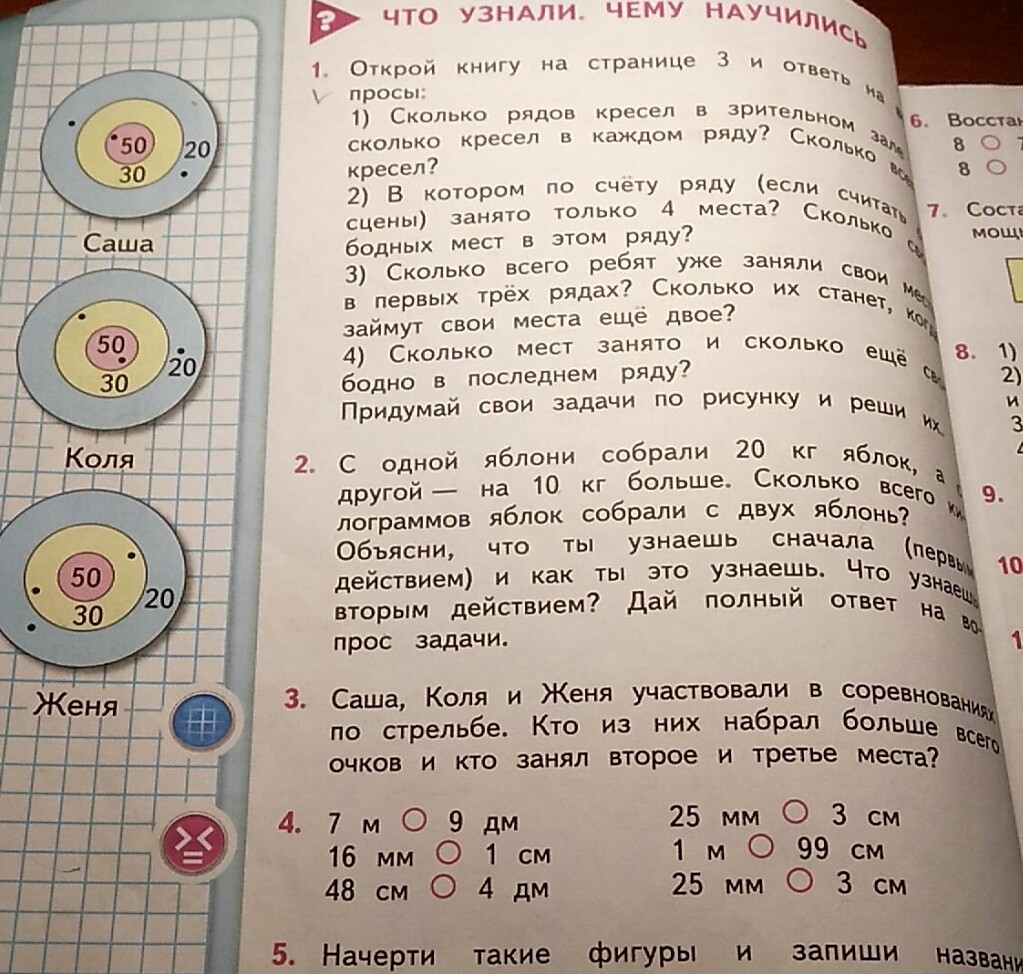 ? ЧТО УЗНАЛИ. ЧЕМУ НАУЧИЛИСЬ
50
20
30
Саша
50
20
30
Коля
50
20
30
Женя
1. Открой книгу на странице 3 и ответь на в
просы:
1) Сколько рядов кресел в зрительном зале
сколько кресел в каждом ряду? Сколько всег
кресел?
2) В котором по счёту ряду (если считать
сцены) занято только 4 места? Сколько св
бодных мест в этом ряду?
3) Сколько всего ребят уже заняли свои мес
в первых трёх рядах? Сколько их станет, когд
займут свои места ещё двое?
4) Сколько мест занято и сколько ещё сво
бодно в последнем ряду?
Придумай свои задачи по рисунку и реши их.
2. С одной яблони собрали 20 кг яблок, а с
другой — на 10 кг больше. Сколько всего ки-
лограммов яблок собрали с двух яблонь?
Объясни, что ты узнаешь сначала (первым
действием) и как ты это узнаешь. Что узнаешь
вторым действием? Дай полный ответ на во-
прос задачи.
3. Саша, Коля и Женя участвовали в соревнованиях
по стрельбе. Кто из них набрал больше всего
очков и кто занял второе и третье места?
4. 7 м ○ 9 дм 25 мм ○ 3 см
16 мм ○ 1 см 1 м ○ 99 см
48 см ○ 4 дм 25 мм ○ 3 см
5. Начерти такие фигуры и запиши названи
6. Восстан
8 ○ 7
8 ○
7. Соста
мощь
8. 1)
2)
и
3
9.
10
1